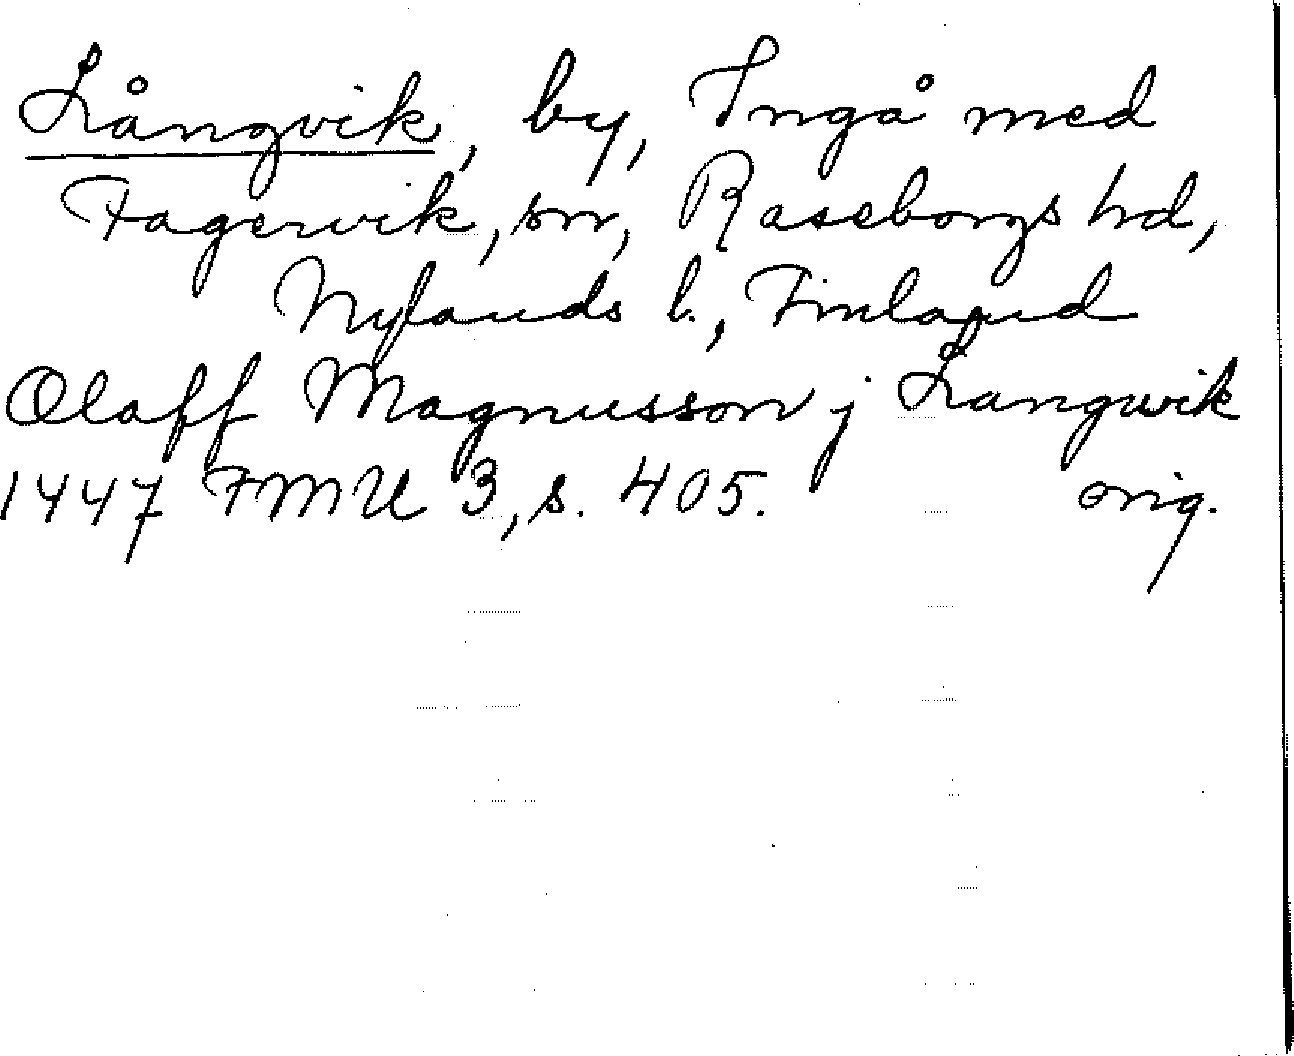 Långvik, by, Ingå med
Fagervik, sn, Raseborgs hd,
Nylands l., Finland
Olaff Magnusson j Langwik
1447 FMU 3, s. 405. orig.